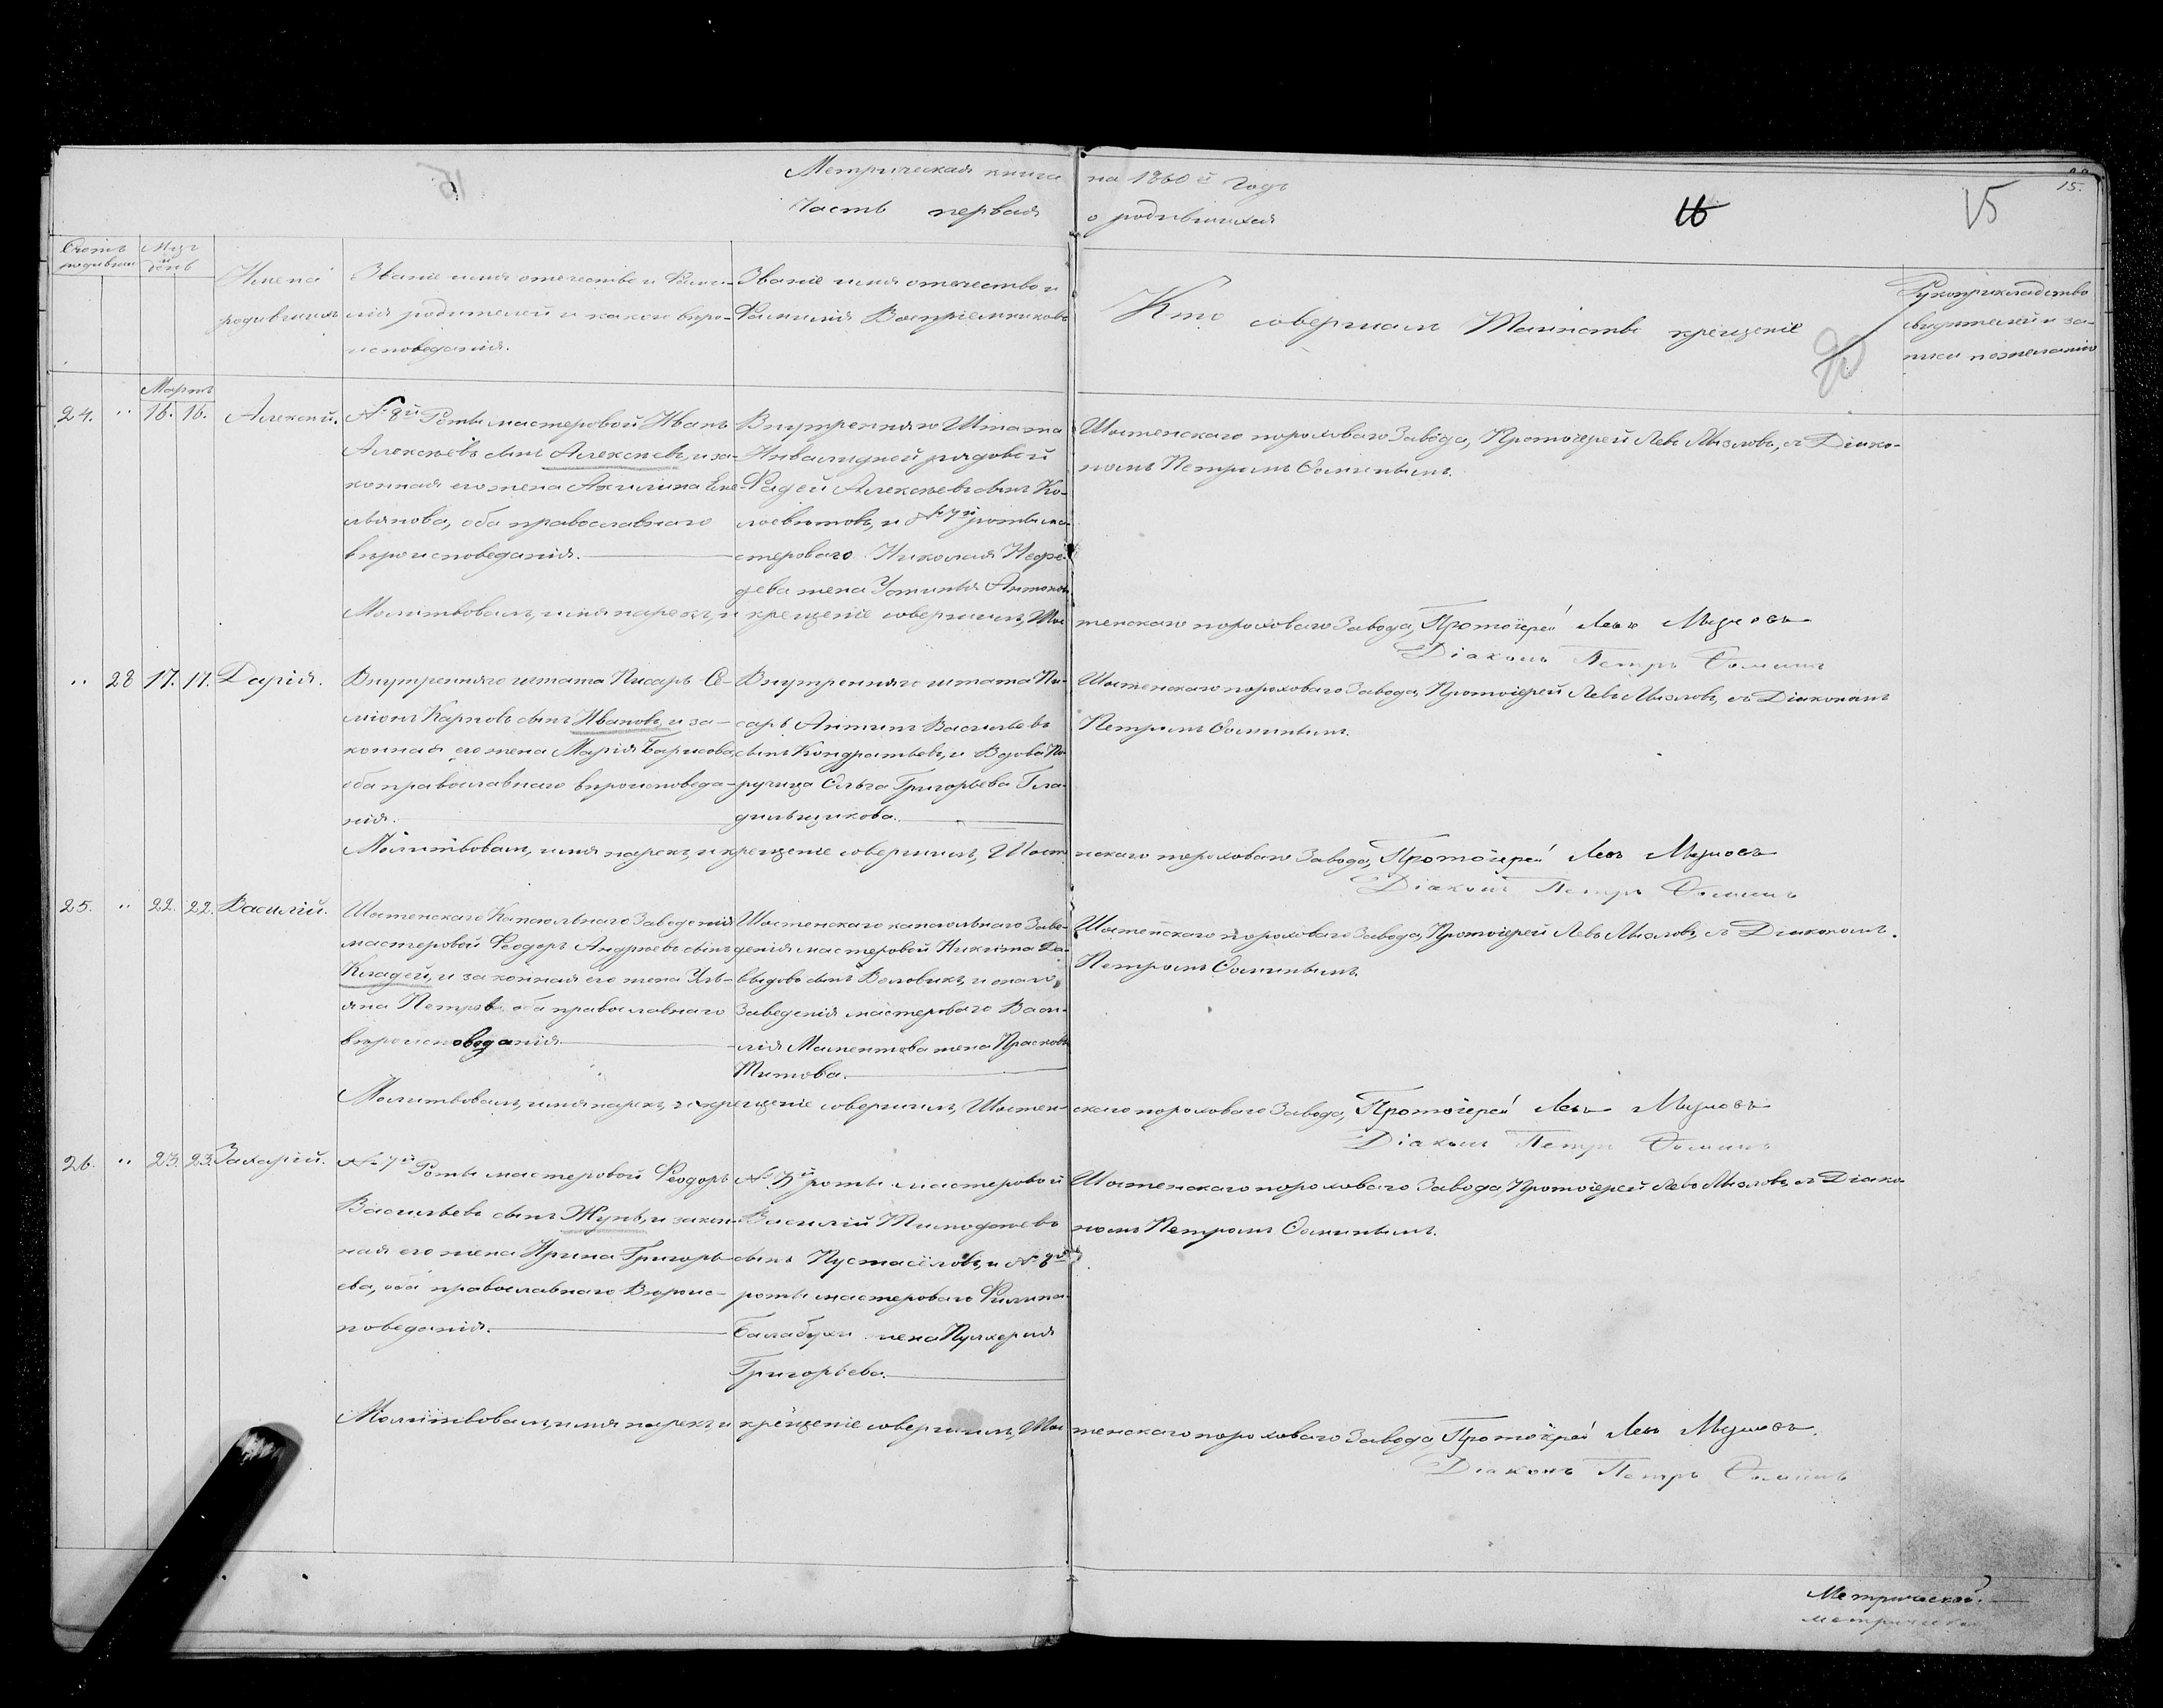 Метрическая книга на 1860й годъ
Часть первая о родившихся
16
15
15.
Счетъ родивши
Мцъ и день
Имена родившихся
Званіе имя отечество и Фами-
лія родителей и какого вѣро-
исповеданія.
Званіе имя отечество и
Фамилія Воспріемниковъ
Кто совершалъ Таинство крещеніе
Рукоприкладство
свидетелей и за-
писи по желанію
Мартъ
24. " 16. 16. Алексѣй.
№ 8й Роты мастеровой Иванъ
Алексѣевъ сынъ Алексѣевъ, и за-
конная его жена Акилина Еме
льянова, оба православнаго
вѣроисповеданія.
Внутренняго Штата
Инвалидной рядовой
Фадей Алексѣевъ сынъ Ко-
и № 7й роты ма-
стероваго Николая
жена Устинья Антонов
Шостенскаго пороховаго Завода, Протоіерей Левъ Мызловъ, съ Діако-
номъ Петромъ Фоминымъ.
Молитвовалъ, имя нарекъ, и крещеніе совершилъ, Шос тенскаго пороховаго Завода, Протоіерей Левъ Мызловъ
Діаконъ Петръ Фоминъ
" 28 17. 17. Дарія.
Внутренняго штата Писарь Се-
міонъ Карповъ сынъ Ивановъ, и за-
конная его жена Марія Барисова,
оба православнаго вѣроисповеда-
нія.
Внутренняго штата Пи-
сарь Антипъ Васильевъ
сынъ Кондратьевъ, и Вдова По-
ручица Ольга Григорьева Гла-
дильщикова.
Шостенскаго пороховаго Завода, Протоіерей Левъ Мызловъ, съ Діакономъ
Петромъ Фоминымъ.
Молитвовалъ, имя нарекъ, и крещеніе совершилъ, Шосте нскаго пороховаго Завода, Протоіерей Левъ Мызловъ
Діаконъ Петръ Фоминъ
25. " 22. 22. Василій.
Шостенскаго Капсюльнаго Заведенія
мастеровой Феодоръ Андреевъ сынъ
Кладей, и законная его жена Уль-
яна Петрова оба православнаго
вѣроисповеданія
Шостенскаго капсюльнаго Заве-
денія мастеровой Никита Да-
выдовъ сынъ Воловикъ, и онаго
Заведенія мастероваго Васи-
лія Маментова жена Прасковья
Титова.
Шостенскаго пороховаго Завода, Протоіерей Левъ Мызловъ, съ Діакономъ.
Петромъ Фоминымъ.
Молитвовалъ, имя нарекъ, и крещеніе совершилъ, Шостен- скаго пороховаго Завода, Протоіерей Левъ Мызловъ
Діаконъ Петръ Фоминъ
26. " 23. 23. Захарій.
№ 7й Роты мастеровой Феодоръ
Васильевъ сынъ Жукъ, и закон-
ная его жена Ирина Григорь-
ева, оба православнаго Вѣроис-
поведанія.
роты мастеровой
Василій Тимофеевъ
сынъ Пустасёловъ, и № 8й
роты мастероваго Филипа
Балабухи жена Пулхерия
Григорьева.
Шостенскаго пороховаго Завода Протоіерей Левъ Мызловъ, съ Діако
номъ Петромъ Фоминымъ.
Молитвовалъ, имя нарекъ, и крещеніе совершилъ, Шос тенскаго пороховаго Завода Протоіерей Левъ Мызловъ.
Діаконъ Петръ Фоминъ
Метрической